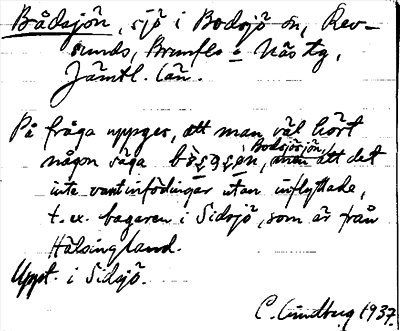 Bådsjön, sjö i Bodsjö sn, Rev-
sunds, Brunflo o Näs tg,
Jämtl. län.
På fråga uppges, att man väl hört
någon säga Bodsjösjön, men att det
inte vant infödingar utan inflyttade,
t. ex. bagaren i Sidsjö, som är från
Hälsingland.
Uppt. i Sidsjö.
C. Lindberg 1937.